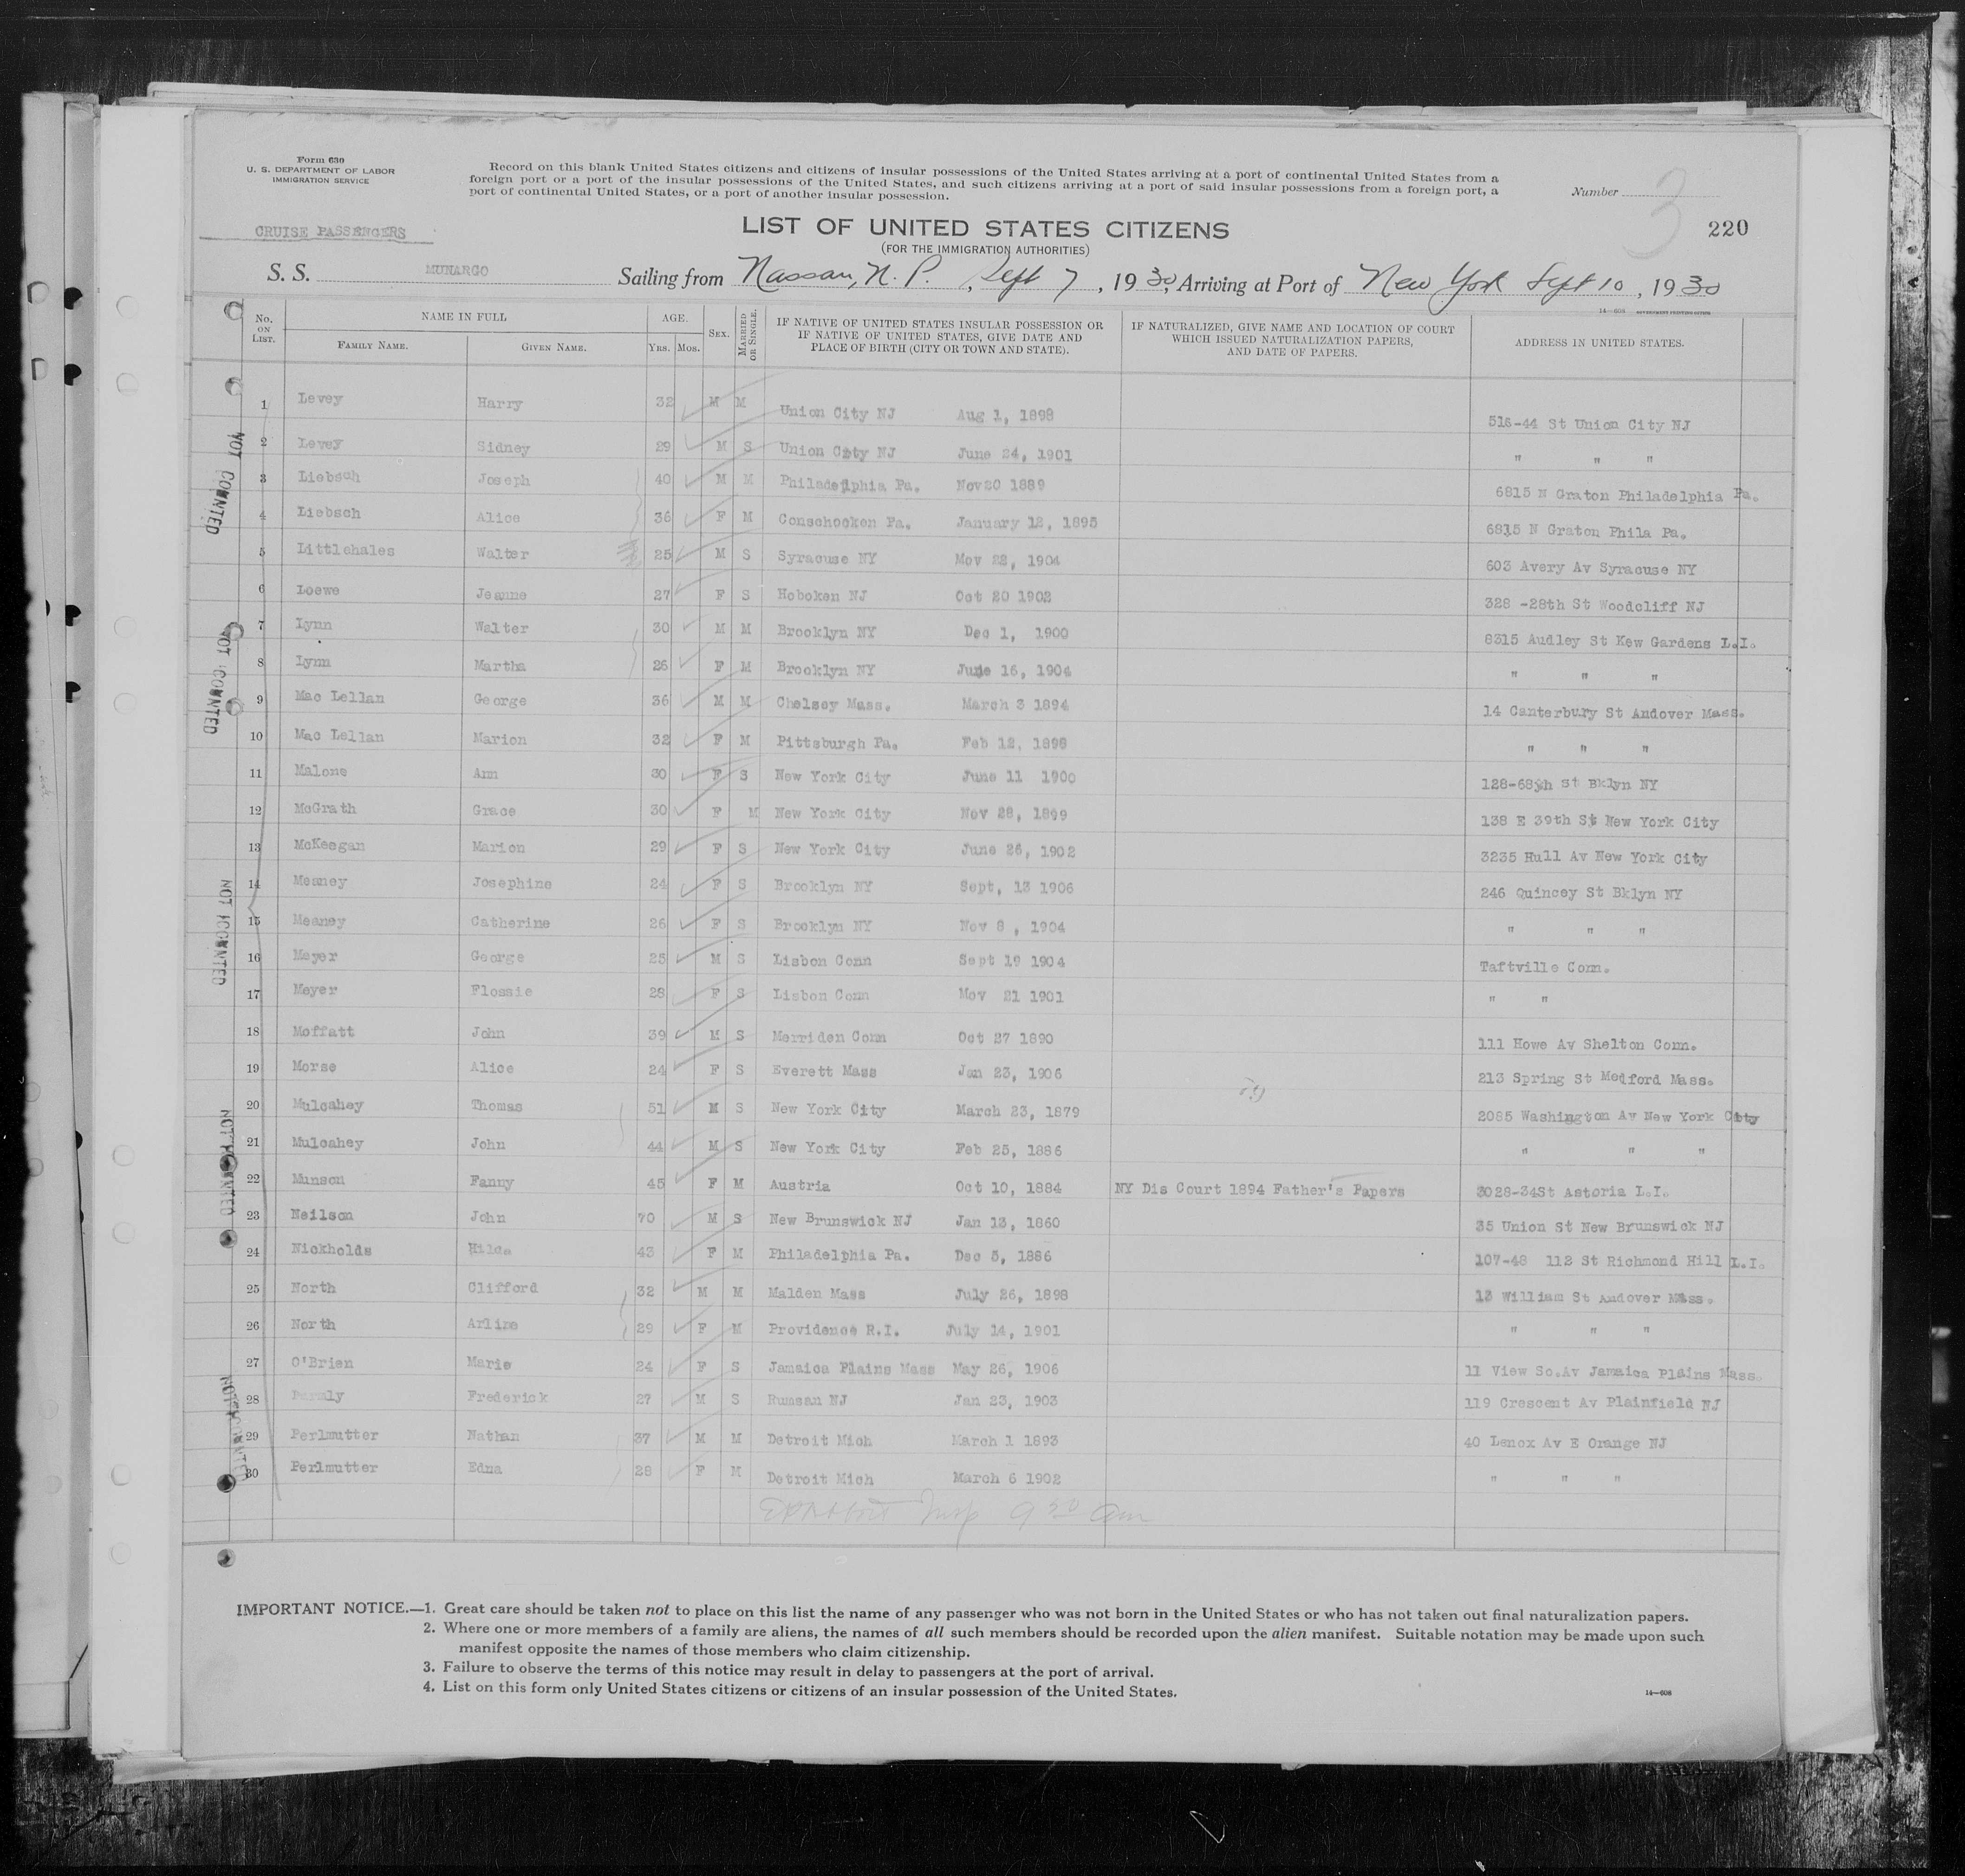 Form 630
U. S. DEPARTMENT OF LABOR
IMMIGRATION SERVICE
Record on this blank United States citizens and citizens of insular possessions of the United States arriving at a port of continental United States from a
foreign port or a port of the insular possessions of the United States, and such citizens arriving at a port of said insular possessions from a foreign port, a
port of continental United States, or a port of another insular possession.
Number
3
220
CRUISE PASSENGERS
LIST OF UNITED STATES CITIZENS
(FOR THE IMMIGRATION AUTHORITIES)
S. S. MUNARGO Sailing from Nassau, N. P., Sept 7, 1930, Arriving at Port of New York Sept 10, 1930
14-608 GOVERNMENT PRINTING OFFICE
No. ON LIST. NAME IN FULL FAMILY NAME. GIVEN NAME. AGE. YRS. MOS. SEX. MARRIED OR SINGLE. IF NATIVE OF UNITED STATES INSULAR POSSESSION OR IF NATIVE OF UNITED STATES, GIVE DATE AND PLACE OF BIRTH (CITY OR TOWN AND STATE). IF NATURALIZED, GIVE NAME AND LOCATION OF COURT WHICH ISSUED NATURALIZATION PAPERS, AND DATE OF PAPERS. ADDRESS IN UNITED STATES.
1 Levey Harry 32 M M Union City NJ Aug 1, 1898 516-44 St Union City NJ
2 Levey Sidney 29 M S Union City NJ June 24, 1901 " " "
3 Liebsch Joseph 40 M M Philadelphia Pa. Nov20 1889 6815 N Graton Philadelphia Pa.
4 Liebsch Alice 36 F M Conschocken Pa. January 12, 1895 6815 N Graton Phila Pa.
5 Littlehales Walter 25 M S Syracuse NY Mov 22, 1904 603 Avery Av Syracuse NY
6 Loewe Jeanne 27 F S Hoboken NJ Oct 20 1902 328 -28th St Woodcliff NJ
7 Lynn Walter 30 M M Brooklyn NY Dec 1, 1900 8315 Audley St Kew Gardens L.I.
8 Lynn Martha 26 F M Brooklyn NY June 16, 1904 " " "
9 Mac Lellan George 36 M M Chelsey Mass. March 3 1894 14 Canterbury St Andover Mass.
10 Mac Lellan Marion 32 F M Pittsburgh Pa. Feb 12, 1898 " " "
11 Malone Ann 30 F S New York City June 11 1900 128-68th St Bklyn NY
12 McGrath Grace 30 F M New York City Nov 28, 1899 138 E 39th St New York City
13 McKeegan Marion 29 F S New York City June 26, 1902 3235 Hull Av New York City
14 Meaney Josephine 24 F S Brooklyn NY Sept, 13 1906 246 Quincey St Bklyn NY
15 Meaney Catherine 26 F S Brooklyn NY Nov 8 , 1904 " " "
16 Meyer George 25 M S Lisbon Conn Sept 19 1904 Taftville Conn.
17 Meyer Flossie 28 F S Lisbon Conn Mov 21 1901 " "
18 Moffatt John 39 M S Merriden Conn Oct 27 1890 111 Howe Av Shelton Conn.
19 Morse Alice 24 F S Everett Mass Jan 23, 1906 213 Spring St Medford Mass.
20 Mulcahey Thomas 51 M S New York City March 23, 1879 2085 Washington Av New York City
21 Mulcahey John 44 M S New York City Feb 25, 1886 " " "
22 Munson Fanny 45 F M Austria Oct 10, 1884 NY Dis Court 1894 Father's Papers 3028-34St Astoria L.I.
23 Neilson John 70 M S New Brunswick NJ Jan 13, 1860 35 Union St New Brunswick NJ
24 Nickholds Hilda 43 F M Philadelphia Pa. Dec 5, 1886 107-48 112 St Richmond Hill L.I.
25 North Clifford 32 M M Malden Mass July 26, 1898 13 William St Andover Mass.
26 North Arline 29 F M Providence R.I. July 14, 1901 " " "
27 O'Brien Marie 24 F S Jamaica Plains Mass May 26, 1906 11 View So.Av Jamaica Plains Mass.
28 Frederick 27 M S Rumsan NJ Jan 23, 1903 119 Crescent Av Plainfield NJ
29 Perlmutter Nathan 37 M M Detroit Mich March 1 1893 40 Lenox Av E Orange NJ
30 Perlmutter Edna 28 F M Detroit Mich March 6 1902 " " "
NOT COUNTED
NOT COUNTED
NOT COUNTED
NOT COUNTED
NOT COUNTED
Insp 9 30 am
IMPORTANT NOTICE.—1. Great care should be taken not to place on this list the name of any passenger who was not born in the United States or who has not taken out final naturalization papers.
2. Where one or more members of a family are aliens, the names of all such members should be recorded upon the alien manifest. Suitable notation may be made upon such
manifest opposite the names of those members who claim citizenship.
3. Failure to observe the terms of this notice may result in delay to passengers at the port of arrival.
4. List on this form only United States citizens or citizens of an insular possession of the United States.
14-608